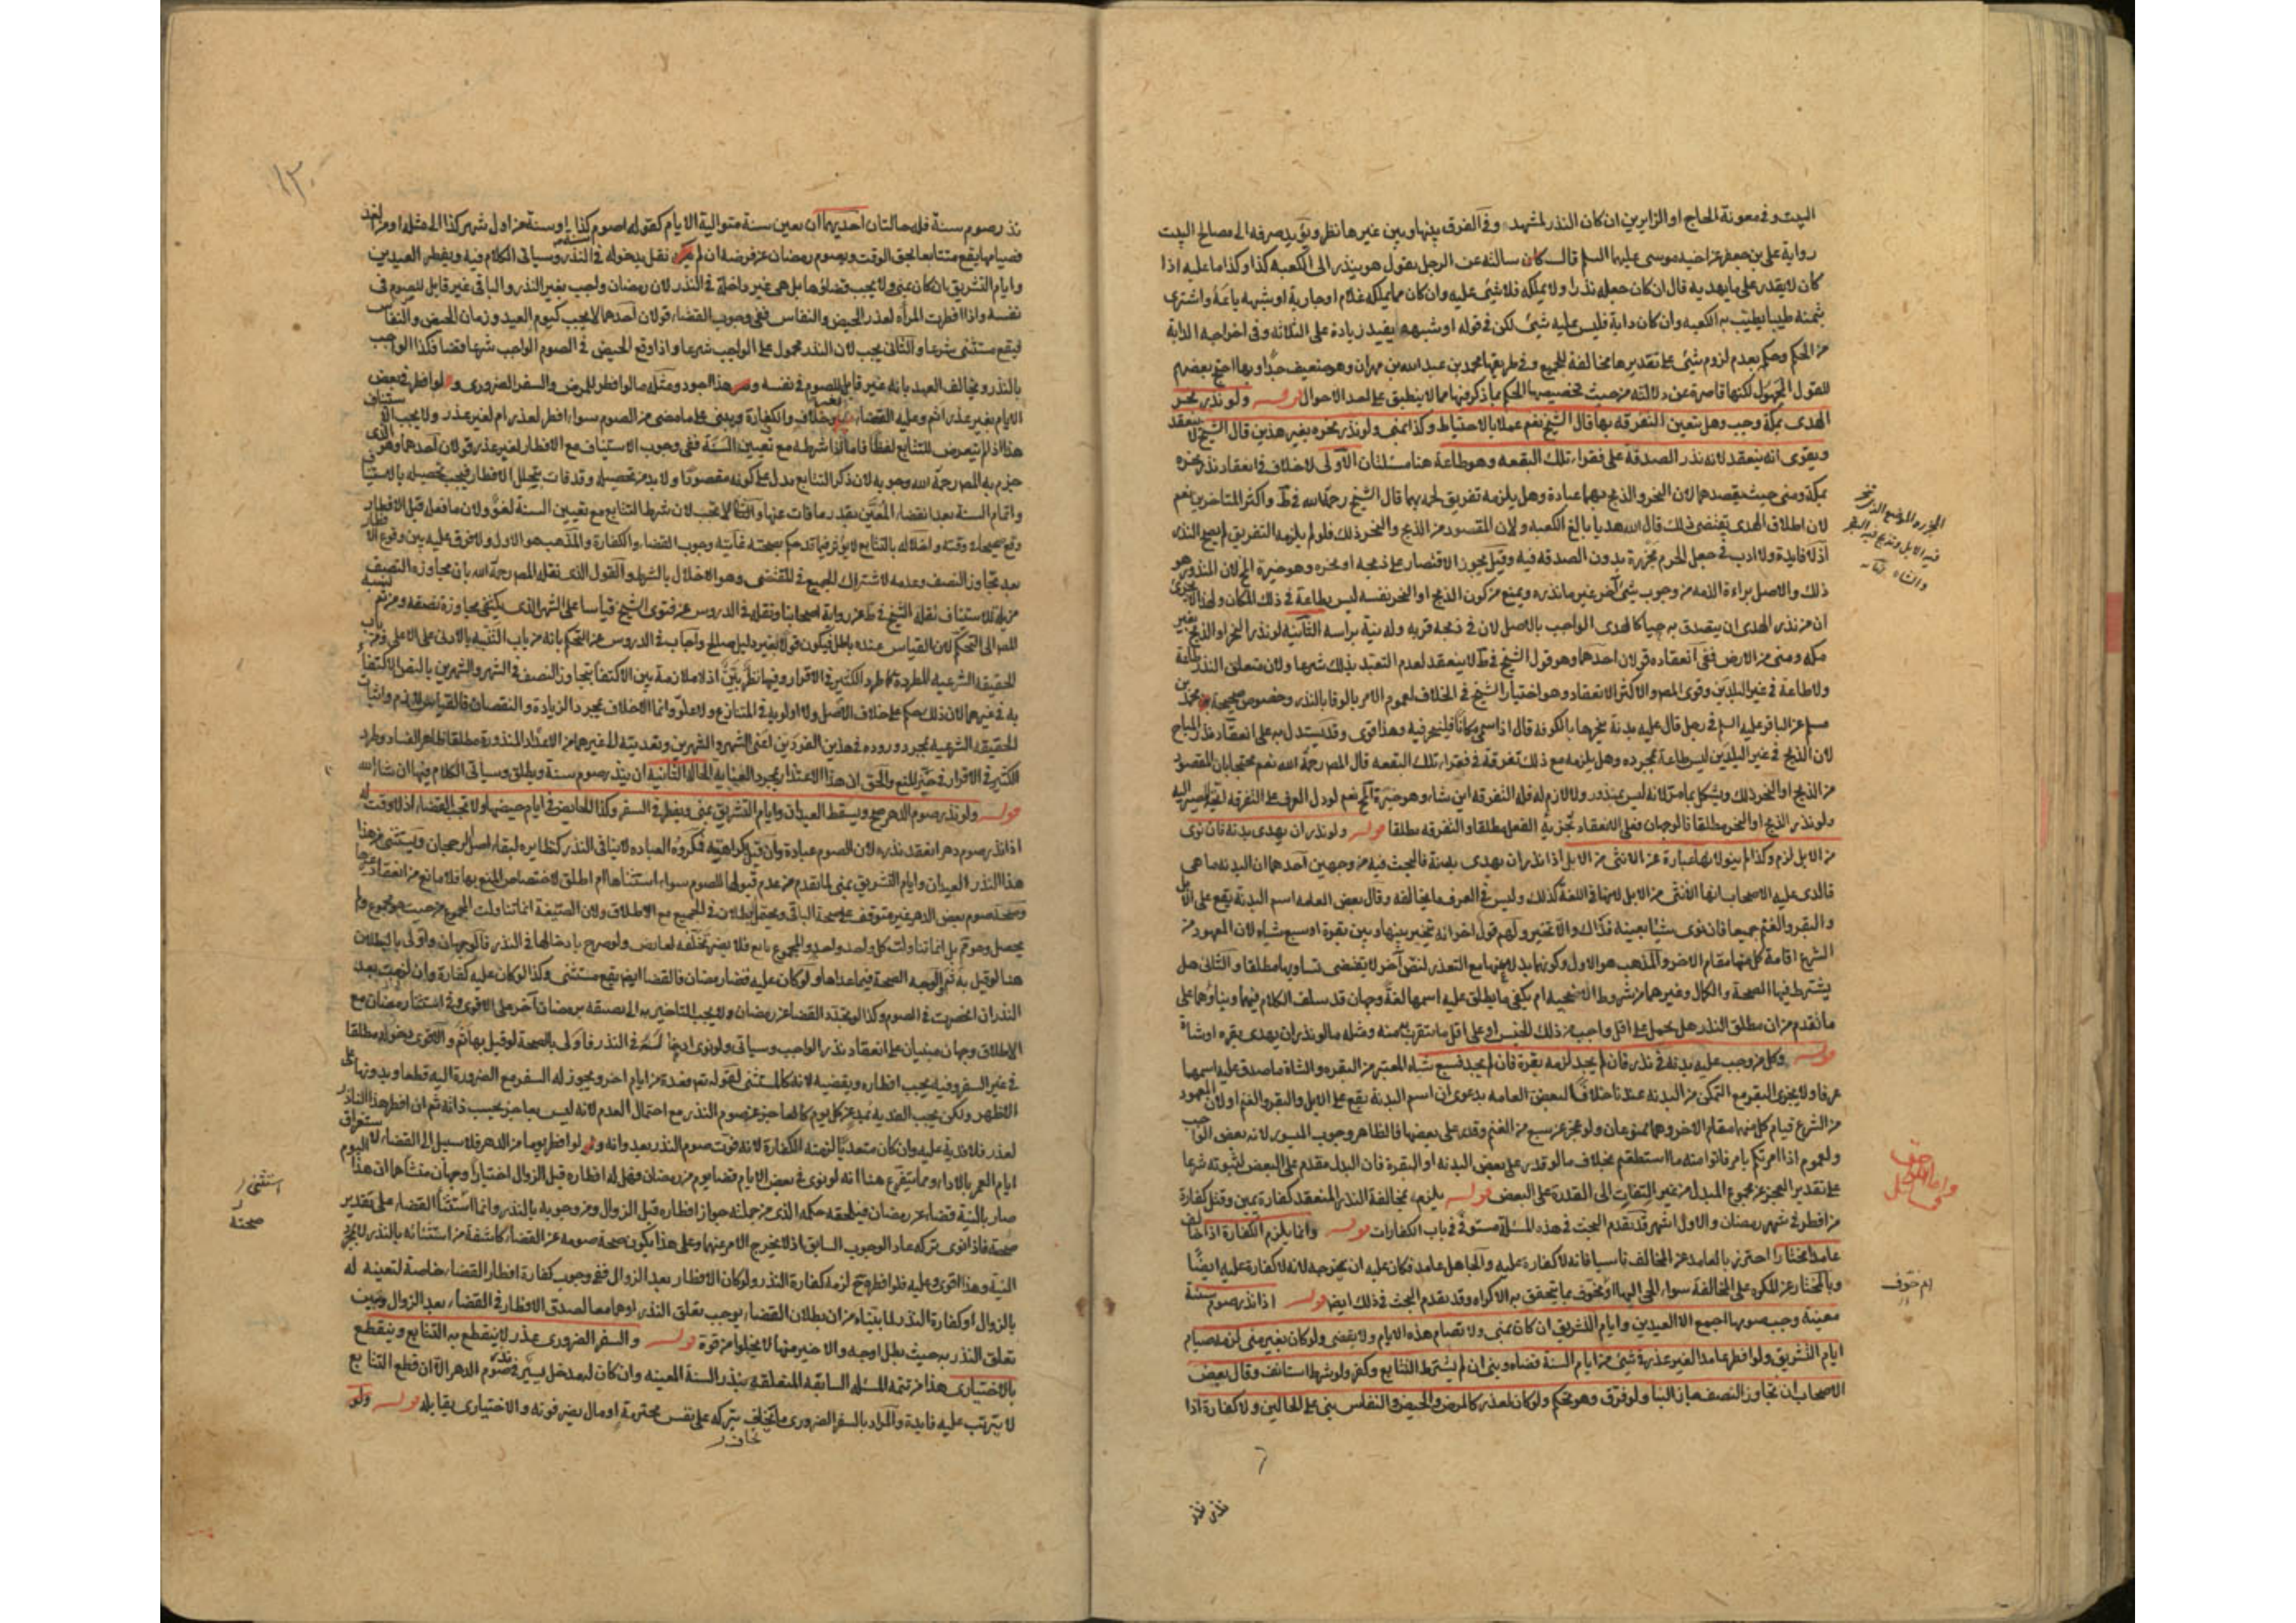 البيت وفي معونة الحاج او الزايرين ان كان النذر لمشهد وفي الفرق بينها وبين غيرها نظر ويؤيد صرفه الى مصالح البيت
رواية علي بن جعفر عن اخيه موسى عليهما السلم قال كان سالته عن الرجل يقول هو ينذر الى الكعبه كذا وكذا ما عليه اذا
كان لا يقدر على ما يهديه قال ان كان جعله نذرا ولا يملكه فلا شئ عليه وان كان مما يملكه غلام او جارية او شبهه باعه واشترى
بثمنه طيبا يطيب به الكعبه وان كان دابة فليس عليه شئ لكن في قوله او شبهه يفيد زيادة على الثلاثه وفي اخراجه الدابة
من الحكم وحكم بعدم لزوم شئ على تقديرها مخالفة للجميع وفي طريقها محمد بن عبد الله بن مهران وهو ضعيف جدا وبها احتج بعضهم
للقول المجهول لكنها قاصرة عن دلالته من حيث تخصيصها الحكم بما ذكر فيها مما لا ينطبق على احد الاحوال قوله ولو نذر نحر
الهدى بمكة وجب وهل يتعين التفرقه بها قال الشيخ نعم عملا بالاحتياط وكذا بمنى ولو نذر نحره بغير هذين قال الشيخ لا ينعقد
ويقوى انه ينعقد لانه نذر الصدقة على فقراء تلك البقعه وهو طاعة هنا مسئلتان الاولى لا خلاف في انعقاد نذر نحره
بمكة ومنى حيث يقصدهما لان النحر والذبح بهما عبادة وهل يلزمه تفريق لحمه بهما قال الشيخ رحمه الله في ط واكثر المتاخرين نعم
لان اطلاق الهدى يقتضى ذلك قال الله هديا بالغ الكعبه ولان المقصود من الذبح والنحر ذلك فلو لم يلزمه التفريق لم يصح النذر
اذ لا فايدة ولا ادب في جعل الحرم مجزرة بدون الصدقه فيه وقيل يجوز الاقتصار على ذبحه او نحره وهو خيرة المخ لان المنذور هو
ذلك والاصل براءة الذمه من وجوب شئ آخر غير ما نذره ويمنع من كون الذبح او النحر نفسه ليس بطاعة في ذلك المكان ولهذا لا يجزى
ان من نذر الهدى ان يتصدق به حيا كالهدى الواجب بالاصل لان في ذبحه قربه وله نية براسه الثانيه لو نذر النحر او الذبح بغير
مكه ومنى من الارض ففي انعقاده قولان احدهما وهو قول الشيخ في ط لا ينعقد لعدم التعبد بذلك شرعا ولان متعلق النذر طاعة
ولا طاعة في غير البلدين وقوى المصر والاكثر الانعقاد وهو اختيار الشيخ في الخلاف لعموم الامر بالوفا بالنذر وخصوص صحيحة محمد بن
مسلم عن الباقر عليه السلم في رجل قال عليه بدنة ينحرها بالكوفه قال اذا سمى مكانا فلينحر فيه وهذا قوى وقد يستدل به على انعقاد نذر المباح
لان الذبح في غير البلدين ليس طاعة بمجرده وهل يلزمه مع ذلك تفرقة في فقراء تلك البقعه قال المصر رحمة الله نعم محتجا بان المقصود
من الذبح او النحر ذلك ويشكل بما مر لانه ليس بمنذور ولا لازم له فله التفرقه اين شاء وهو خيرة المخ نعم لو دل العرف على التفرقه اتجه المصير اليه
ولو نذر الذبح او النحر مطلقا فالوجهان فعلى الانعقاد تجزيه الفعل مطلقا والتفرقه مطلقا قوله ولو نذر ان يهدى بدنه فان نوى
من الابل لزم وكذا لم ينو لانها عبارة عن الانثى من الابل اذا نذر ان يهدى بدنة فالبحث فيه من وجهين احدهما ان البدنه ما هى
فالذى عليه الاصحاب انها الانثى من الابل لانها في اللغة كذلك وليس في العرف ما يخالفه وقال بعض العامه اسم البدنة يقع على الابل
والبقر والغنم جميعا فان نوى شيئا بعينه فذاك والا تخير ولهم قول اخر انه تخير بينها وبين بقرة او سبع شياه لان المعهود من
الشرع اقامة كل منها مقام الاخر والمذهب هو الاول وكونها بدلا عنها مع التعذر لنص آخر لا يقتضى تساويها مطلقا والثانى هل
يشترط فيها الصحة والكمال وغيرهما من شروط الاضحيه ام يكفى ما يطلق عليه اسمها لغة وجهان قد سلف الكلام فيهما وبناؤهما على
ما تقدم من ان مطلق النذر هل يحمل على اقل واجب من ذلك الجنس او على اقل ما يتقرب به منه ومثله ما لو نذر ان يهدى بقره او شاة
قوله وكل من وجب عليه بدنه في نذر فان لم يجد لزمه بقرة فان لم يجد فسبع شياه المعتبر من البقره والشاة ما صدق عليه اسمها
عرفا ولا يجزى البقر مع التمكن من البدنه عندنا خلافا لبعض العامه بدعوى ان اسم البدنة يقع على الابل والبقر والغنم او لان المعهود
من الشرع قيام كل منها مقام الاخر وهما ممنوعان ولو عجز عن سبع من الغنم وقدر على بعضها فالظاهر وجوب الميسور لانه بعض الواجب
ولعموم اذا امرتكم بامر فاتوا منه ما استطعتم بخلاف ما لو قدر على بعض البدنه او البقرة فان البدل مقدم على البعض لثبوته شرعا
على تقدير العجز عن مجموع المبدل من غير التفات الى القدرة على البعض قوله يلزم بمخالفة النذر المنعقد كفارة يمين وقيل كفارة
من افطر في شهر رمضان والاول اشهر قد تقدم البحث في هذه المسئلة مستوفى في باب الكفارات قوله وانما يلزم الكفارة اذا خالف
عامدا مختارا احترز بالعامد عن المخالف ناسيا فانه لا كفارة عليه والجاهل عامد فكان عليه ان يخرجه لانه لا كفارة عليه ايضا
وبالمختار عن المكره على المخالفة سواء الجى اليها او يخوف بما يتحقق به الاكراه وقد تقدم البحث في ذلك ايضا قوله اذا نذر صوم سنة
معينة وجب صومها اجمع الا العيدين وايام التشريق ان كان بمنى ولا تصام هذه الايام ولا يقضى ولو كان بغير منى لزمه صيام
ايام التشريق ولو افطر عامدا لغير عذر في شئ من ايام السنة قضاه وبنى ان لم يشترط التتابع وكفر ولو شرط استانف وقال بعض
الاصحاب ان تجاوز النصف جاز البنا ولو فرق وهو تحكم ولو كان لعذر كالمرض والحيض والنفاس بنى على الحالين ولا كفارة اذا
المجزره الموضع الذى تنحر
فيه الابل وتذبح فيه البقر
والشاة
ام خوف
نذر صوم سنة فله حالتان احديهما ان يعين سنة متوالية الايام كقوله اصوم كذا او سنة من اول شهر كذا الى مثله او من الغد
فصيامها يقع متتابعا لحق الوقت ويصوم رمضان عن فرضه ان لم نقل بدخوله في النذر وسياتى الكلام فيه ويفطر العيدين
وايام التشريق ان كان بمنى ولا يجب قضاؤها بل هى غير داخلة في النذر لان رمضان واجب بغير النذر والباقى غير قابل للصوم في
نفسه واذا افطرت المرأه لعذر الحيض والنفاس ففى وجوب القضاء قولان احدهما لا يجب كيوم العيد وزمان الحيض والنفاس
فيقع مستثنى شرعا والثانى يجب لان النذر محمول على الواجب شرعا واذا وقع الحيض في الصوم الواجب شرعا قضا فكذا الواجب
بالنذر ويخالف العيد بانه غير قابل للصوم في نفسه وهذا اجود ومثله ما لو افطر للمرض والسفر الضرورى ولو افطر في بعض
الايام بغير عذر اثم وعليه القضاء بغير خلاف والكفارة ويبنى على ما مضى من الصوم سواء افطر لعذر ام لغير عذر ولا يجب الاستيناف
هذا اذا لم يتعرض للتتابع لفظا فاما اذا شرطه مع تعيين السنة ففى وجوب الاستيناف مع الافطار لغير عذر قولان احدهما وهو الذى
جزم به المصر رحمة الله وجوبه لان ذكر التتابع يدل على كونه مقصودا ولا بد من تحصيله وقد فات بتخلل الافطار فيجب تحصيله بالاستيناف
واتمام السنة بعد انقضاء المعين بقدر ما فات عنها والثانى لا يجب لان شرط التتابع مع تعيين السنة لغو ولان ما فعل قبل الافطار
وقع صحيحا في وقته واخلاله بالتتابع لا يؤثر فيما قد حكم بصحته غايته وجوب القضاء والكفارة والمذهب هو الاول ولا فرق عليه بين وقوع الافطار
بعد تجاوز النصف وعدمه لاشتراك الجميع في المقتضى وهو الاخلال بالشرط والقول الذى نقله المصر رحمة الله بان مجاوزة النصف
مزيلة للاستيناف نقله الشيخ في ط عن رواية اصحابنا ونقله في الدروس عن فتوى الشيخ قياسا على الشهر الذى يكتفى مجاوزة نصفه ومن ثم نسبه
المصر الى التحكم لان القياس عنده باطل فيكون قولا بغير دليل صالح واجاب في الدروس عن التحكم بانه من باب التنبيه بالادنى على الاعلى ومن باب
الحقيقه الشرعيه المطردة كما طرد الكثير في الاقرار وفيهما نظر بين اذ لا ملازمة بين الاكتفا بتجاوز النصف في الشهر والشهرين بالنص الاكتفاء
به في غيرهما لان ذلك حكم على خلاف الاصل ولا اولويه في المتنازع ولا علو وانما الاختلاف بمجرد الزيادة والنقصان فالقياس لازم واثبات
الحقيقه الشرعيه بمجرد وروده في هذين الفردين اعنى الشهر والشهرين وتعديته الى غيرهما من الاعداد المنذورة مطلقا ظاهر الفساد وطرد
الكثير في الاقرار في حيز المنع والحق ان هذا الاعتذار بمجرد العنايه الحالة الثانيه ان ينذر صوم سنة ويطلق وسياتى الكلام فيها ان شاء الله
قوله ولو نذر صوم الدهر صح ويسقط العيدان وايام التشريق بمنى ويفطر في السفر وكذا الحايض في ايام حيضها ولا يجب القضاء اذ لا وقت له
اذا نذر صوم دهر انعقد نذره لان الصوم عبادة وان قيل بكراهته فمكروه العباده لا ينافى النذر كنظايره لبقاء اصل الرجحان ويستثنى من هذا
هذا النذر العيدان وايام التشريق بمنى لما تقدم من عدم قبولها للصوم سواء استثناها ام اطلق لاختصاص المنع بها فلا مانع من انعقاد غيرها
وصحة صوم بعض الدهر غير متوقف على صحة الباقى ويحتمل بطلانه في الجميع مع الاطلاق ولان الصيغة انما تناولت المجموع من حيث هو مجموع ولم
يحصل وهو ثم بل انما تناولت كل واحد واحد والمجموع تابع فلا يضر تخلفه لعارض ولو صرح بادخالها في النذر فالوجهان واولى بالبطلان
هنا لو قيل به ثم والوجه الصحة فيما عداها ولو كان عليه قضاء رمضان فالقضاء ايضا يقع مستثنى وكذا لو كان عليه كفارة وان لزمت بعد
النذر ان انحصرت في الصوم وكذا لو تجدد القضا عن رمضان ولا يجب التاخير به الى تضيقه برمضان آخر على الاقوى وفي استثناء رمضان مع
الاطلاق وجهان مبنيان على انعقاد نذر الواجب وسياتى ولو نوى ادخاله في النذر فاولى بالصحة لو قيل بها ثم والاقوى دخوله مطلقا
في غير السفر وفيه يجب افطاره ويقضيه لانه كالمستثنى لقوله تعالى فعدة من ايام اخر ويجوز له السفر مع الضرورة اليه قطعا وبدونها على
الاظهر ولكن يجب الفديه بمد عن كل يوم كالعاجز عن صوم النذر مع احتمال العدم لانه ليس بعاجز بحسب ذاته ثم ان افطر هذا الناذر
لعذر فلا فدية عليه وان كان متعديا لزمته الكفارة لانه فوت صوم النذر بعدوانه ولو افطر يوما من الدهر فلا سبيل الى القضاء لاستغراق
ايام العمر بالاداء ومما يتفرع هنا انه لو نوى في بعض الايام قضا يوم من رمضان فهل له افطاره قبل الزوال اختيارا وجهان منشاهما ان هذا اليوم
صار بالنية قضاء عن رمضان فيلحقه حكمه الذى من جملته جواز افطاره قبل الزوال ومن وجوبه بالنذر وانما استثنا القضاء على تقدير
صحته فاذا نوى تركه عاد الوجوب السابق اذ لا يخرج الامر عنهما وعلى هذا يكون صحة صومه عن القضاء كاشفة من استثنائه بالنذر لا بمجرد
النية وهذا قوى وعليه فلو افطر ح لزمه كفارة النذر ولو كان الافطار بعد الزوال ففى وجوب كفارة افطار القضاء خاصة لتعينه له
بالزوال او كفارة النذر لما بيناه من ان بطلان القضاء يوجب تعلق النذر او هما معا لصدق الافطار في القضاء بعد الزوال وتبين
تعلق النذر به حيث بطل اوجه والاخير منها لا يخلوا من قوة قوله والسفر الضرورى عذر لا ينقطع به التتابع وينقطع
بالاختيارى هذا من تتمه المسئله السابقه المتعلقه بنذر السنة المعينه وان كان لبعد دخل يسير في صوم الدهر الا ان قطع التتابع
لا يترتب عليه فايدة والمراد بالسفر الضرورى ما يخاف بتركه على نفس محترمة او مال يضر فوته والاختيارى يقابله قوله ولو
استثنى
صحته